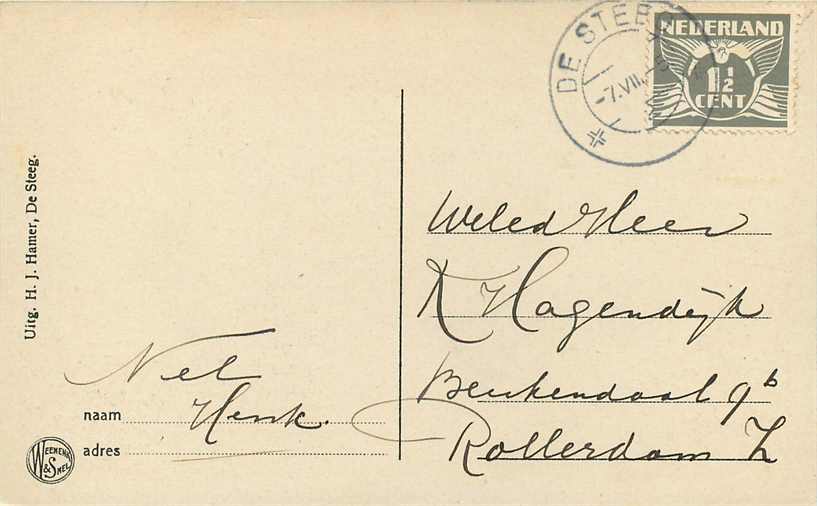 DE STEEG
-7.VII.
NEDERLAND
1½
CENT
Uitg. H. J. Hamer, De Steeg.
Weled Heer
K Hagendijk
Beukendaal 9b
Rotterdam Z
Nel
naam Henk.
adres
WEENENK & SNEL